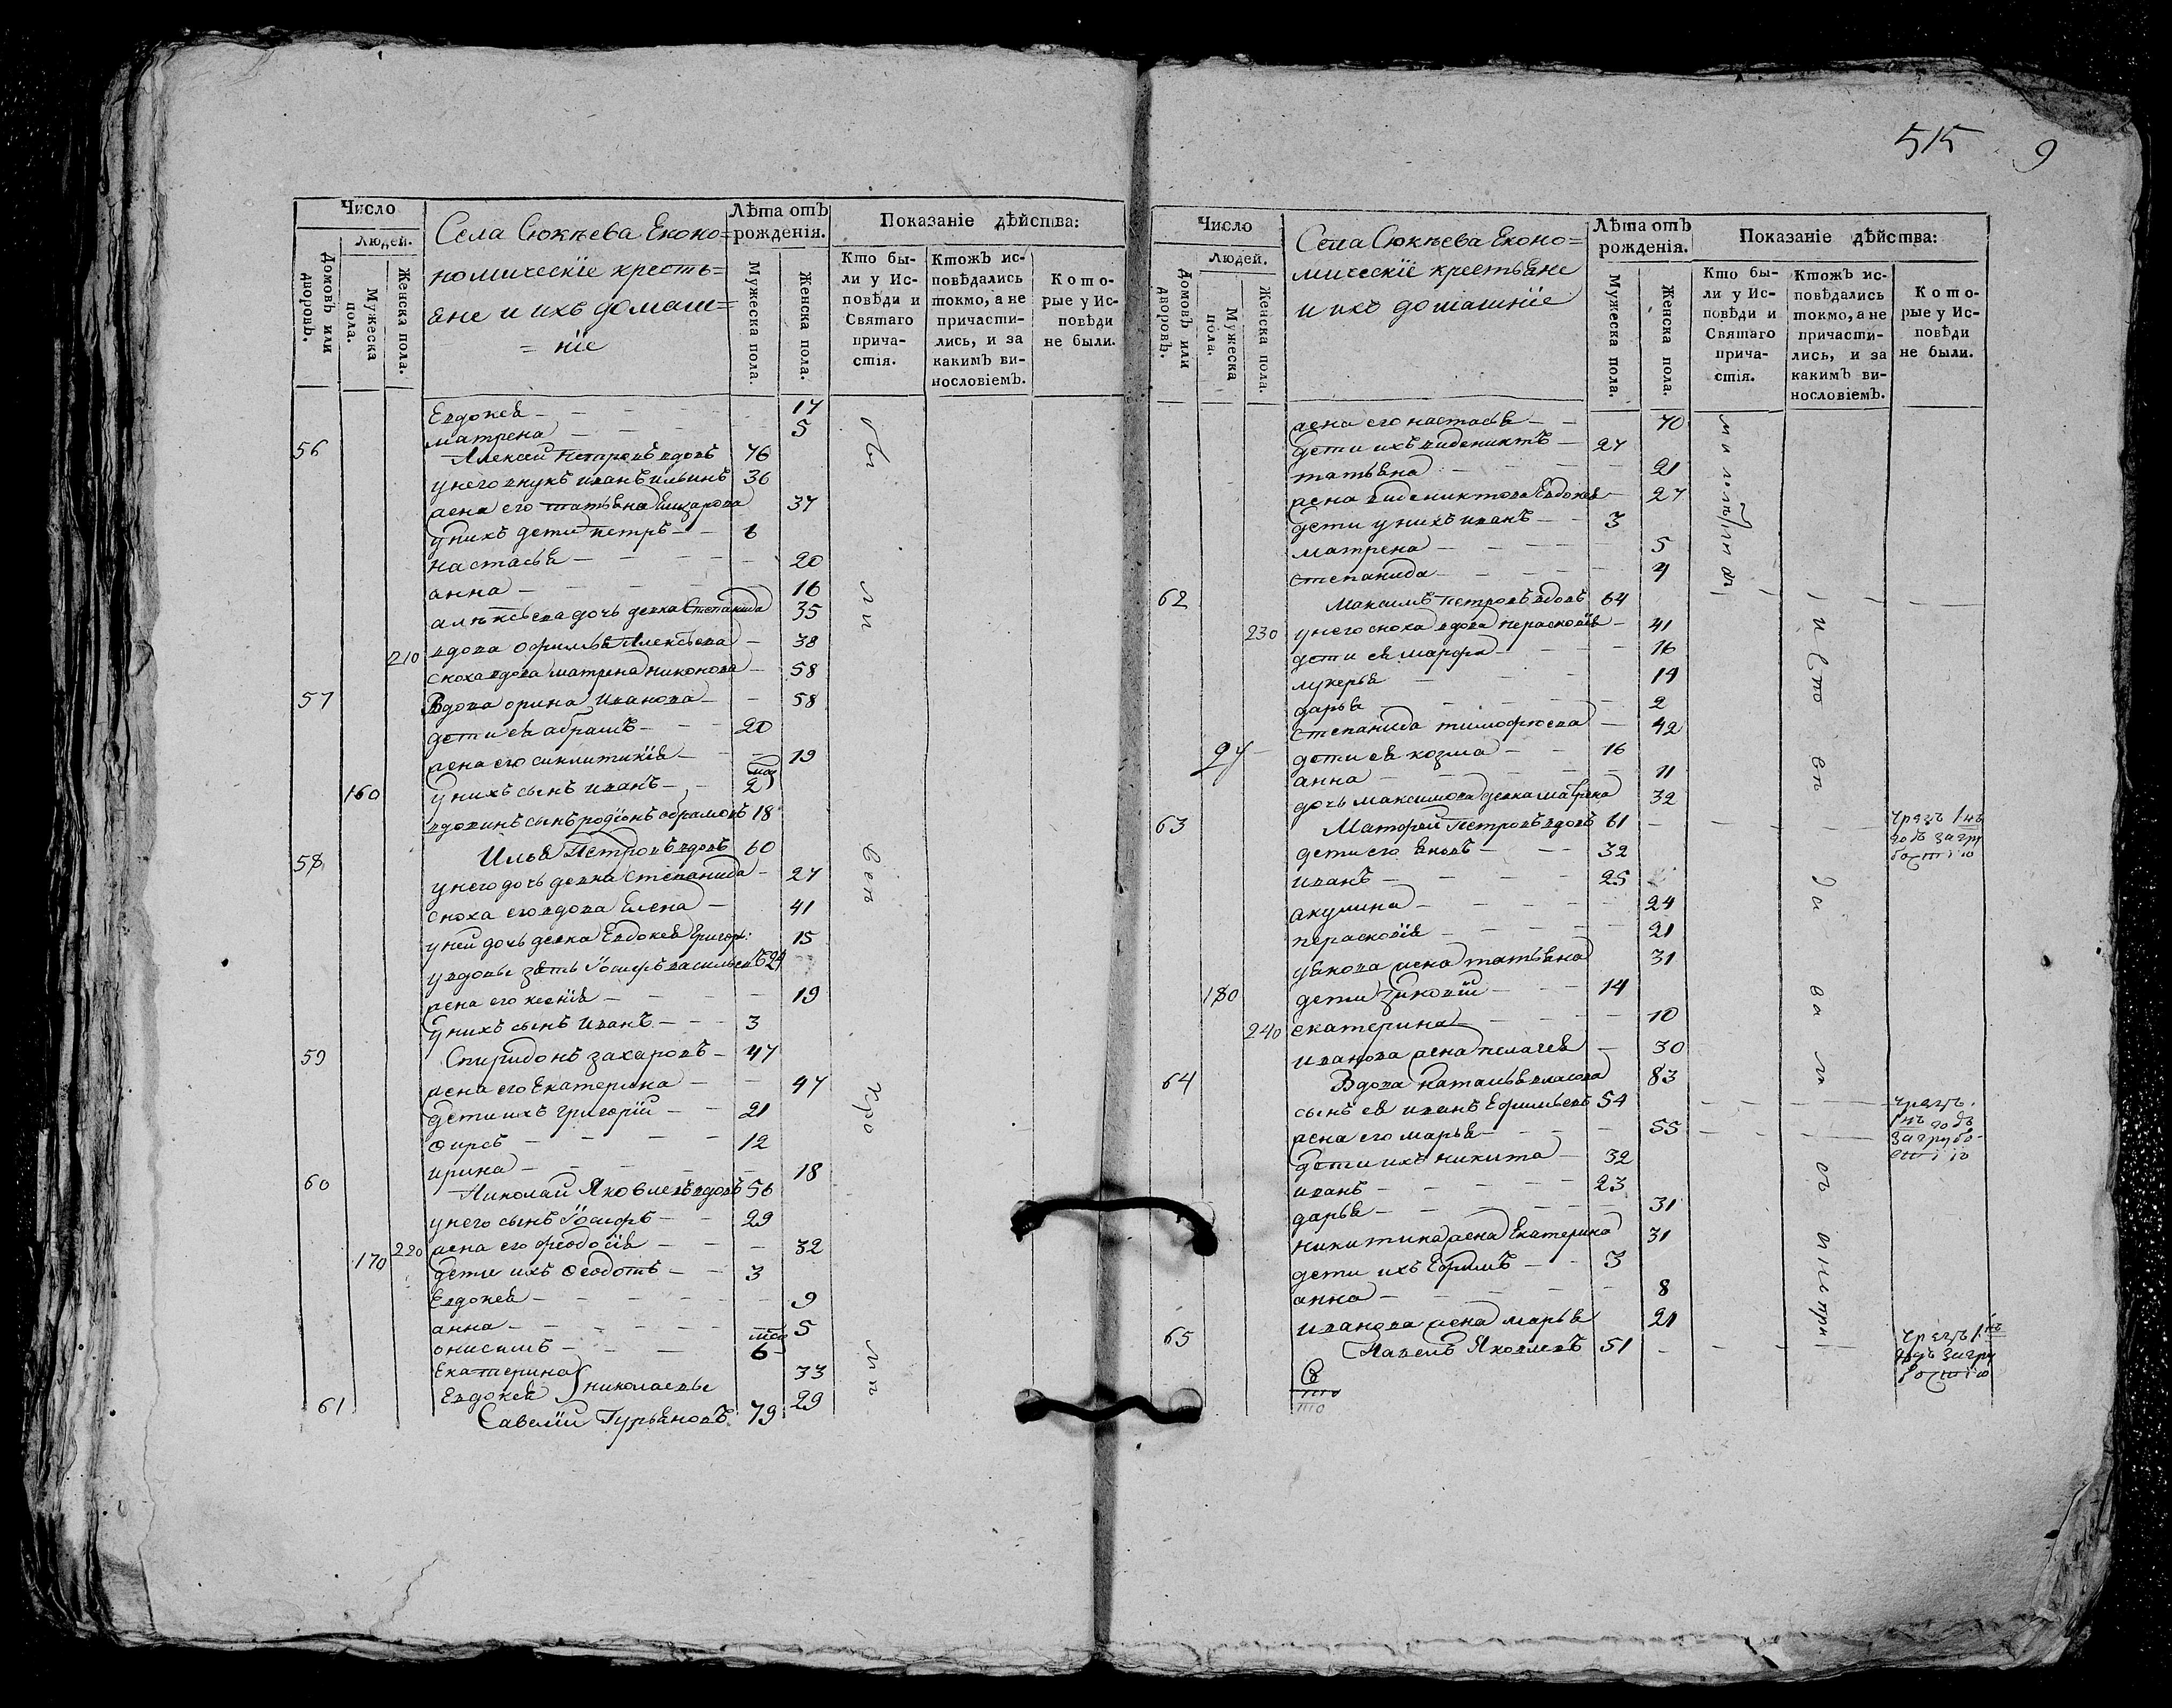 515 9
Число
Людей.
Домовъ или дворовъ.
Мужеска пола.
Женска пола.
Села Сюкѣева Еконо=
номическїе кресть=
яне и ихъ домаш=
= нїе
Лѣта отъ рожденія.
Мужеска пола.
Женска пола.
Показаніе дѣйства:
Кто бы-
ли у Ис-
повѣди и
Святаго
прича-
стія.
Ктожъ ис-
повѣдались
токмо, а не
причасти-
лись, и за
какимъ ви-
нословіемъ.
Кото-
рые у Ис-
повѣди
не были.
Евдокея — 17
матрена — 5
56 Алексѣй Петровъ вдовъ 76
у него внукъ иванъ ильинъ 36
жена его татьяна Елизарова 37
у нихъ дети петръ — 6
настасья — 20
анна — 16
дочь девка Степанида 35
210 вдова Офимья Алексѣева — 38
сноха вдова матрена никонова — 58
57 Вдова орина иванова — 58
дети ея абрамъ — 20
жена его синклитикїя — 19
160 у нихъ сынъ иванъ — 2
вдовинъ сынъ родїонъ абрамовъ 18
58 Илья Петровъ вдовъ 60
у него дочь девка степанида — 27
сноха его вдова Елена — 41
у ней дочь девка Евдокея Григор: 15
у вдовы зять Іосифъ васильевъ 24
жена его ксенїя — 19
у нихъ сынъ иванъ — 3
59 Спиридонъ захаровъ — 47
жена его Екатерина — 47
дети ихъ григорїй — 21
ѳирсъ — 12
ирина — 18
60 Николай Яковлевъ вдовъ 56
у него сынъ Іосифъ — 29
220 жена его феодосїя — 32
170 дети ихъ Ѳеодотъ — 3
Евдокея — 9
анна — 5
онисимъ — 6
Екатерина 33
Евдокея николаевы 29
61 Савелїй Гурьяновъ 79
Число
Людей.
Домовъ или дворовъ.
Мужеска пола.
Женска пола.
Села Сюкѣева Еконо=
мическїе крестьяне
и ихъ домашнїе
Лѣта отъ рожденія.
Мужеска пола.
Женска пола.
Показаніе дѣйства:
Кто бы-
ли у Ис-
повѣди и
Святаго
прича-
стія.
Ктожъ ис-
повѣдались
токмо, а не
причасти-
лись, и за
какимъ ви-
нословіемъ.
Кото-
рые у Ис-
повѣди
не были.
жена его настасья — 70
дети ихъ — 27
татьяна — 21
жена Евдокея — 27
дети у нихъ иванъ — 3
матрена — 5
степанида — 4
62 Максимъ Петровъ вдовъ 64
230 у него сноха вдова перасковїя — 41
дети ея марфа — 16
лукерья — 14
дарья — 2
степанида тимофеева — 42
дети ея козма — 16
анна — 11
дочь максимова девка матрена 32
63 Матфей Петровъ вдовъ 61 — чрезъ 1нъ
годъ за гру
бостїю
дети его яковъ — 32
иванъ — 25
акулина — 24
перасковїя — 21
якова жена татьяна 31
180 дети зиновїй — 14
240 екатерина — 10
иванова жена пелагея — 30
64 Вдова наталья власова 83
сынъ ея иванъ Ефимьевъ 54 — чрезъ
1нъ годъ
за грубо-
стїю
жена его марья — 55
дети ихъ никита — 32
иванъ — 23
дарья — 31
никитина жена Екатерина 31
дети ихъ Ефимъ — 3
анна — 8
иванова жена марья 21
65 Павелъ Яковлевъ 51 — чрезъ 1нъ
годъ за гру
бостїю